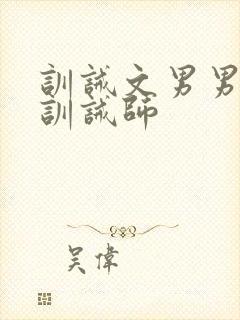 訓誡文男男
訓誡師
吴偉